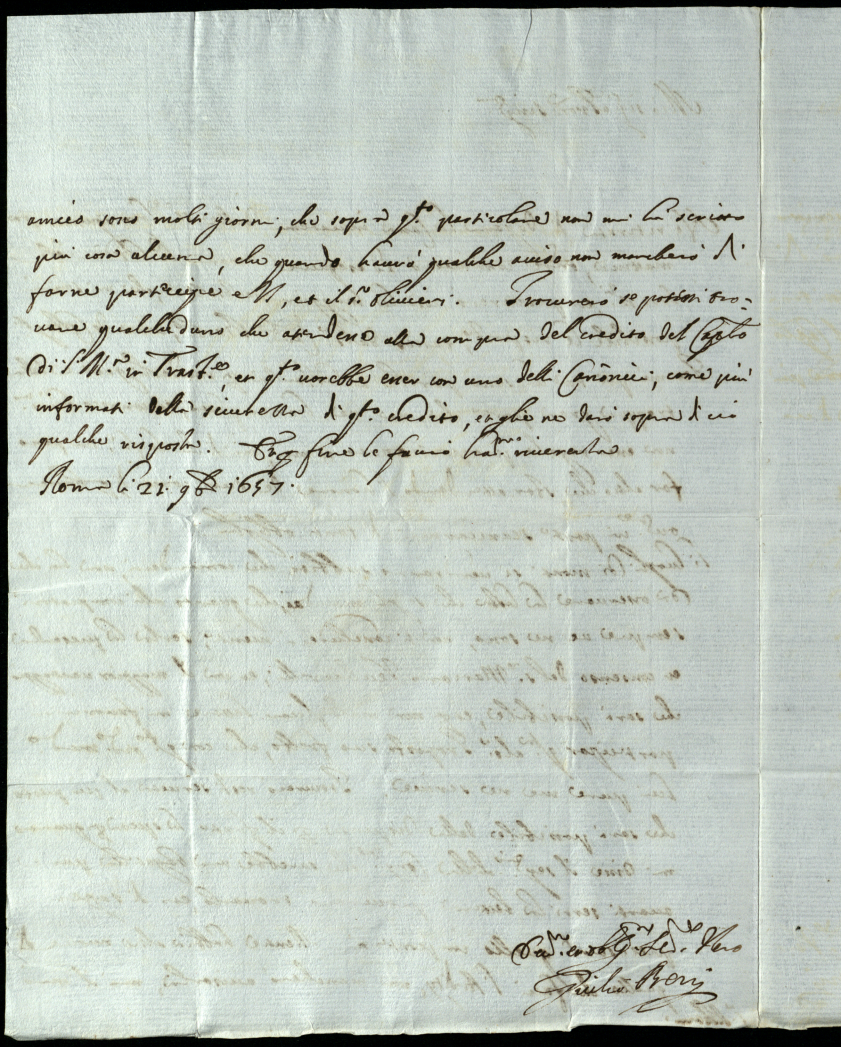 amico sono molti giorni, che sopra q.to particolare non mi ha scritto
più cosa alcuna, che quando havrò qualche aviso non mancherò di
farne partecipe e M, et il S.r Olivieri. Procurerò se potessi tro-
vare qualcheduno che attendesse alla compra del credito del Cap.lo
di S. M.a in Trast.e, et q.to vorebbe esser con uno delli Canonici, come più
informati della sicurezza di q.to credito, et gliene darò sopra di ciò
qualche risposta. fine le faccio riverenza
Roma li 21 9bre 1657.
Ser.re
Giulio